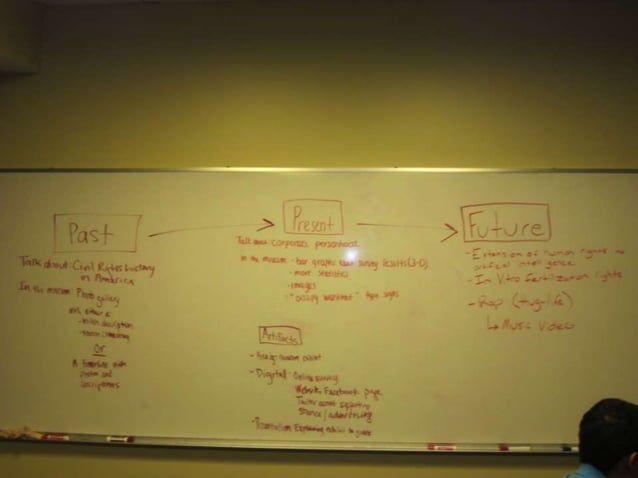 Past
Talk about: Civil Rights history
in America
In the museum: Photo gallery
with either a
- written description
Or
A timeline with
photos and
descriptions
Present
Talk about corporate personhood
In the museum: - bar graphs survey results (3-D)
- more statistics
- images
- "occupy wallstreet" type signs
Artifacts
- Analog: museum exhibit
- Digital: Online survey
Website, Facebook page
Twitter account supporting
stance/advertising
- Presentation: Explaining exhibit to guests
Future
- Extension of human rights to
artifical intelligence
- In Vitro Fertilization rights
- Rap (thug-life)
↳ Music Video